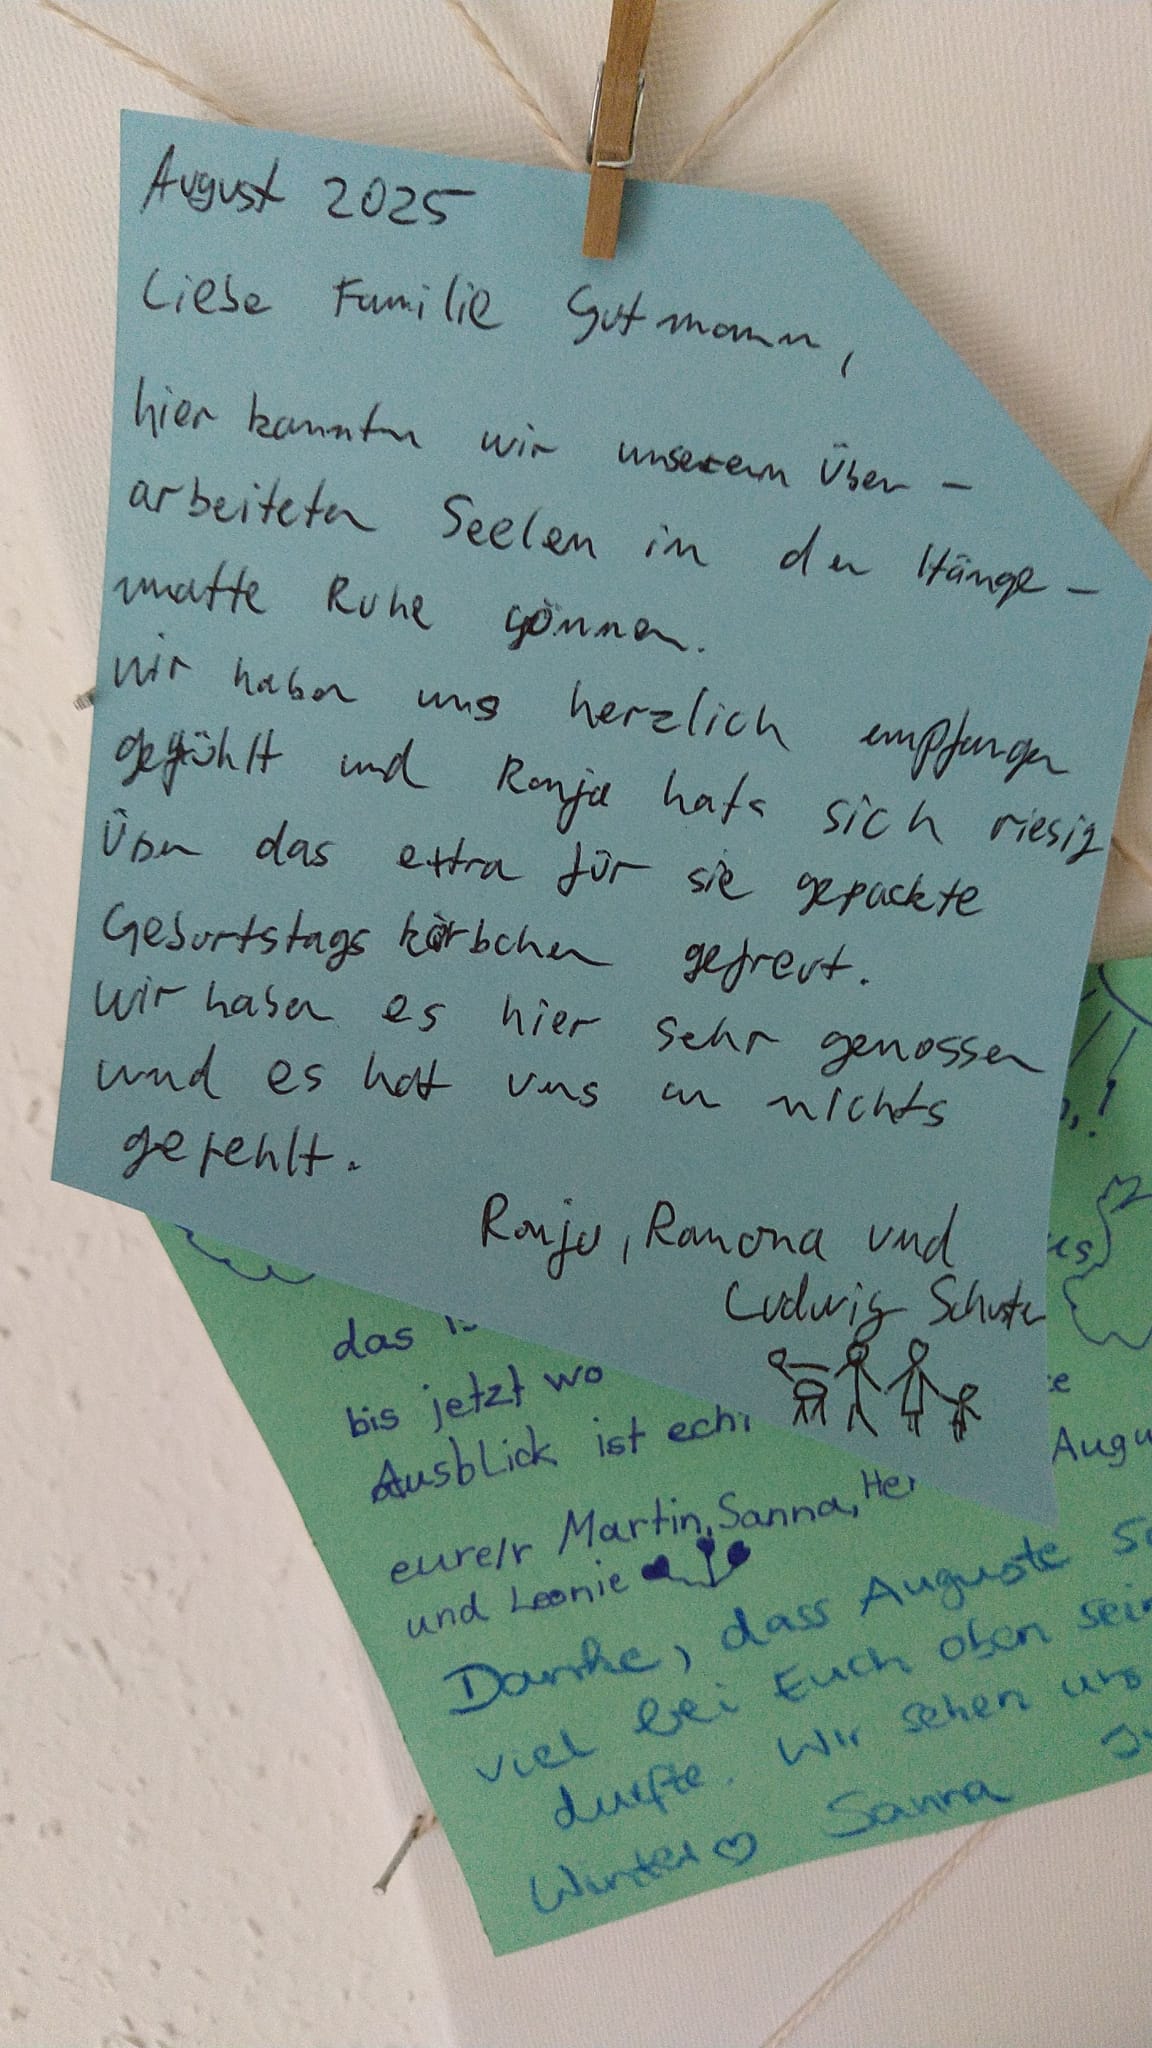 August 2025
Liebe Familie Gutmann,
hier konnten wir unseren über-
arbeiteten Seelen in der Hänge-
matte Ruhe gönnen.
Wir haben uns herzlich empfangen
gefühlt und Ronja hats sich riesig
über das extra für sie gepackte
Geburtstagskörbchen gefreut.
Wir haben es hier sehr genossen
und es hat uns an nichts
gefehlt.
Ronja, Ramona und
Ludwig
das
bis jetzt wo
Ausblick ist
eure/r Martin, Sanna,
und Leonie
Danke, dass Auguste
viel bei Euch oben
durfte. Wir sehen uns
Winter ♡ Sanna